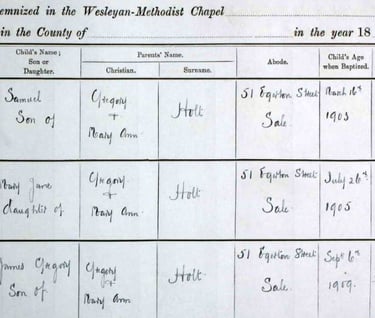 emnized in the Wesleyan-Methodist Chapel
in the County of in the year 18
Child's Name; Son or Daughter. Parents' Name. Abode. Child's Age when Baptized.
Christian. Surname.
Samuel Gregory Holt 51 Egerton Street March 16th
Son of + Sale. 1903
Mary Ann
Mary Jane Gregory Holt 51 Egerton Street July 26th
daughter of + Sale. 1905
Mary Ann
James Gregory Gregory Holt 51 Egerton Street Sept 6th
Son of + Sale. 1909.
Mary Ann